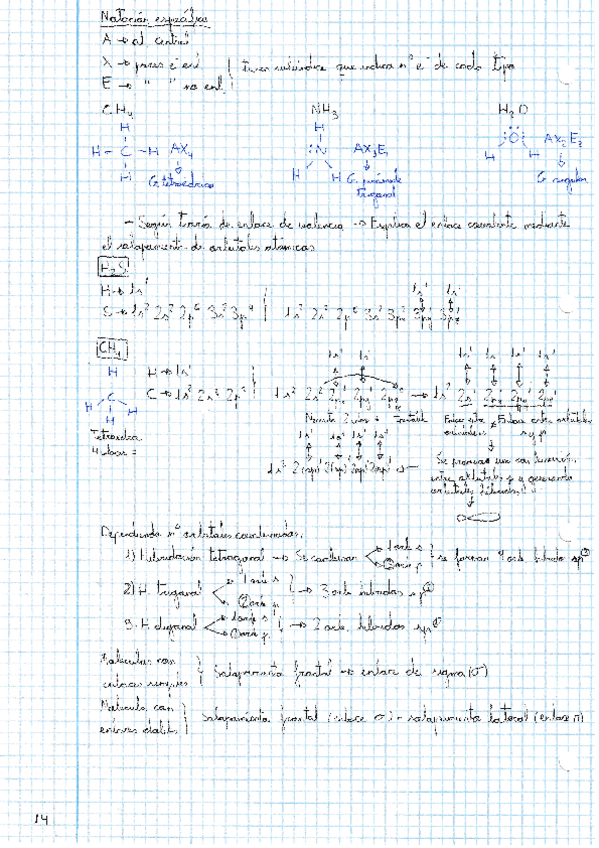 Notación espacial
A → at. central
X → pares e⁻ enl
E → " " no enl.
tienen subíndice que indica nº e⁻ de cada tipo
CH₄ NH₃ H₂O
H
H - C - H AX₄
H
G. tetraédrica
H
:N AX₃E₁
H H G. pirámide
trigonal
:Ö: AX₂E₂
H H
G. angular
- Según teoría de enlace de valencia → Explica el enlace covalente mediante
el solapamiento de orbitales atómicos
H₂S
H → 1s¹ 1s¹ 1s¹
S → 1s² 2s² 2p⁶ 3s² 3p⁴ 1s² 2s² 2p⁶ 3s²
CH₄
H H → 1s¹ 1s¹ 1s¹ 1s¹ 1s¹ 1s¹ 1s¹
C → 1s² 2s² 2p² 1s² 2s² 2px¹ 2py¹ → 1s² 2s¹ 2px¹ 2py¹ 2pz¹
H C H
H
Tetraedro
Enlace entre orbitales
s y p
1s¹ 1s¹ 1s¹ 1s¹
Se produce una combinación
entre orbitales s y p generando
orbitales híbridos
Dependiendo nº orbitales combinados.
1) Hibridación tetragonal → Se combinan 1 orb s 3 orb p se forman 4 orb híbrido sp³
2) H. trigonal 1 orb s 2 orb p → 3 orb híbridos sp²
3. H. diagonal 1 orb s 1 orb p → 2 orb. híbridos sp¹
Moléculas con
enlaces simples
Solapamiento frontal → enlace de sigma (σ)
Molécula con
enlaces dobles
Solapamiento frontal (enlace σ) - solapamiento lateral (enlace π)
14